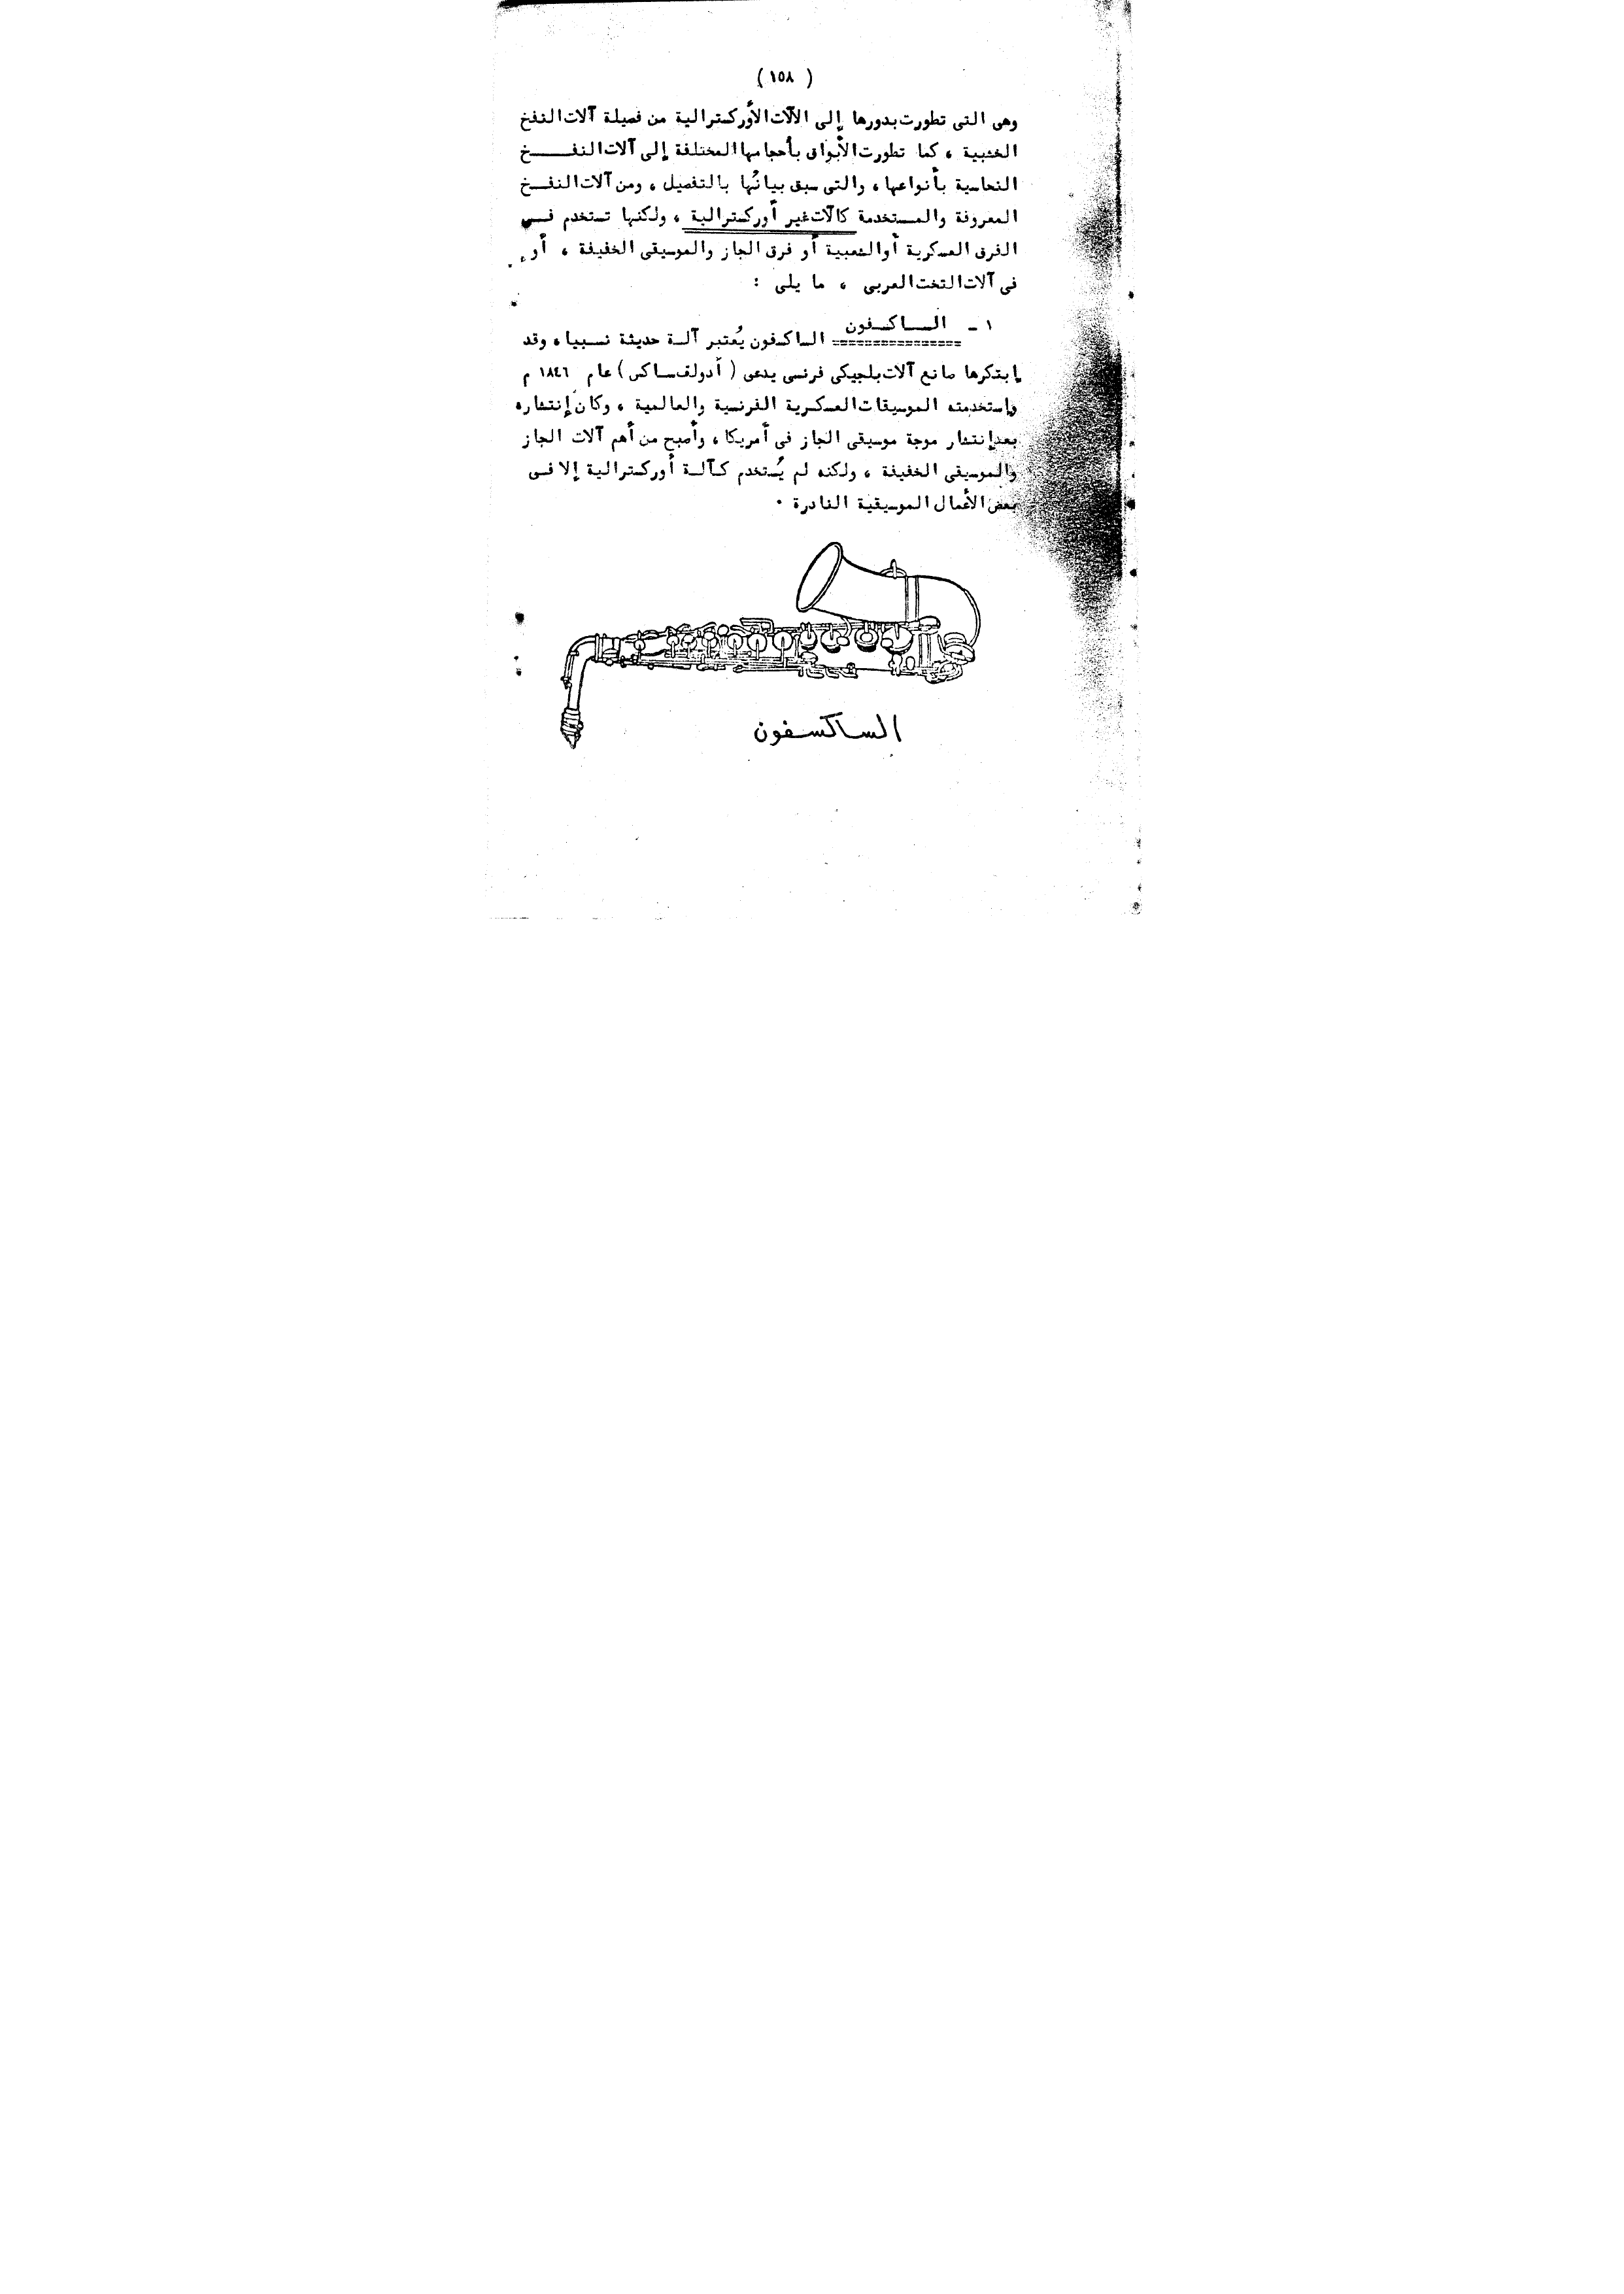 ( ١٥٨ )
وهى التى تطورت بدورها إلى الآلات الأوركسترالية من فصيلة آلات النفخ
الخشبية ، كما تطورت الأبواق بأحجامها المختلفة إلى آلات النفــــــخ
النحاسية بأنواعها ، والتى سبق بيانُها بالتفصيل ، ومن آلات النفــخ
المعروفة والمستخدمة كآلات غير أوركسترالية ، ولكنها تستخدم فــى
الفرق العسكرية أو الشعبية أو فرق الجاز والموسيقى الخفيفة ، أو
فى آلات التخت العربى ، ما يلى :
١ ـ الســاكسفون
الساكسفون يُعتبر آلــة حديثة نسبيا ، وقد
إبتكرها صانع آلات بلجيكى فرنسى يدعى ( أدولف ساكس ) عام ١٨٤٦ م
وإستخدمته الموسيقات العسكرية الفرنسية والعالمية ، وكان إنتشاره
بعد إنتشار موجة موسيقى الجاز فى أمريكا ، وأصبح من أهم آلات الجاز
والموسيقى الخفيفة ، ولكنه لم يُستخدم كـآلــة أوركسترالية إلا فــى
بعض الأعمال الموسيقية النادرة ٠
الساكسفون